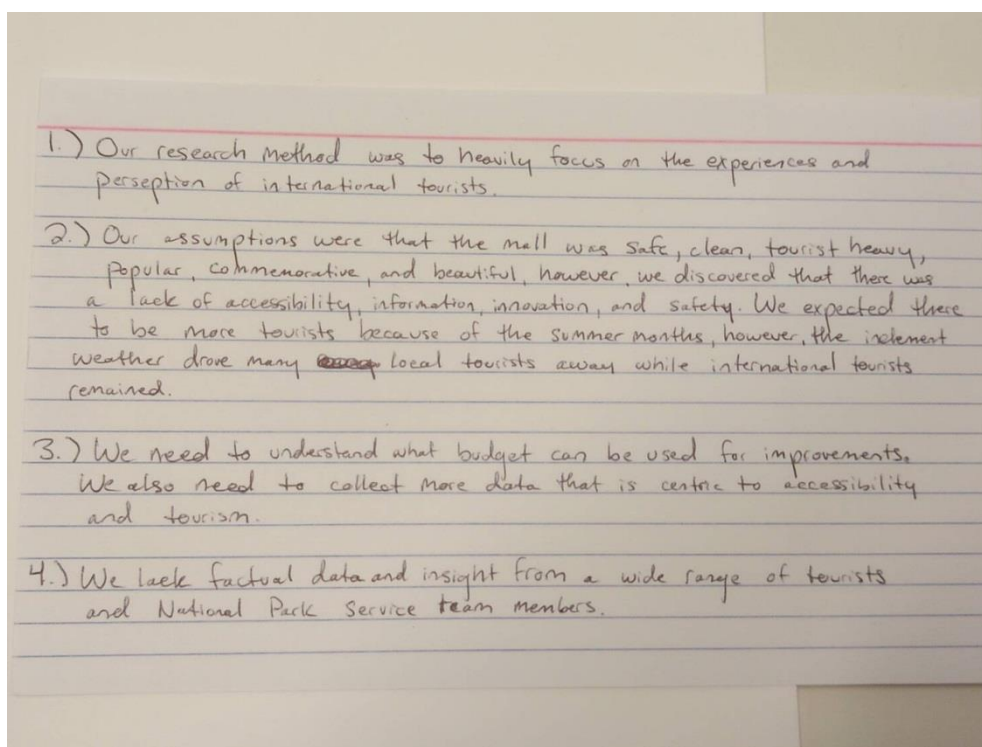 1.) Our research method was to heavily focus on the experiences and
perseption of international tourists.
2.) Our assumptions were that the mall was safe, clean, tourist heavy,
popular, commemorative, and beautiful, however, we discovered that there was
a lack of accessibility, information, innovation, and safety. We expected there
to be more tourists because of the summer months, however, the inclement
weather drove many local tourists away while international tourists
remained.
3.) We need to understand what budget can be used for improvements.
We also need to collect more data that is centric to accessibility
and tourism.
4.) We lack factual data and insight from a wide range of tourists
and National Park Service team members.